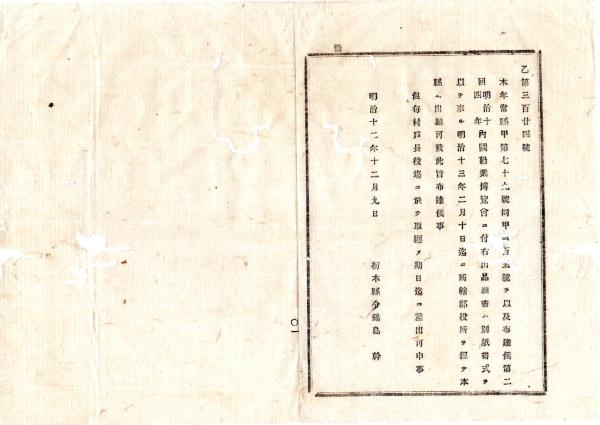 乙第三百廿四號
本年當縣甲第七十九號同甲 百 號ヲ以及布達候第二
回明治十四年內國勸業博覽會ニ付右出品願書ハ別紙書式ヲ
以テ來ル明治十三年二月十日迄ニ所轄郡役所ヲ經テ本
縣ヘ出願可致此旨布達候事
但每村戶長役塲ニ於テ取纒メ期日迄ニ差出可申事
明治十二年十二月九日
栃木縣令鍋島 幹
〇一